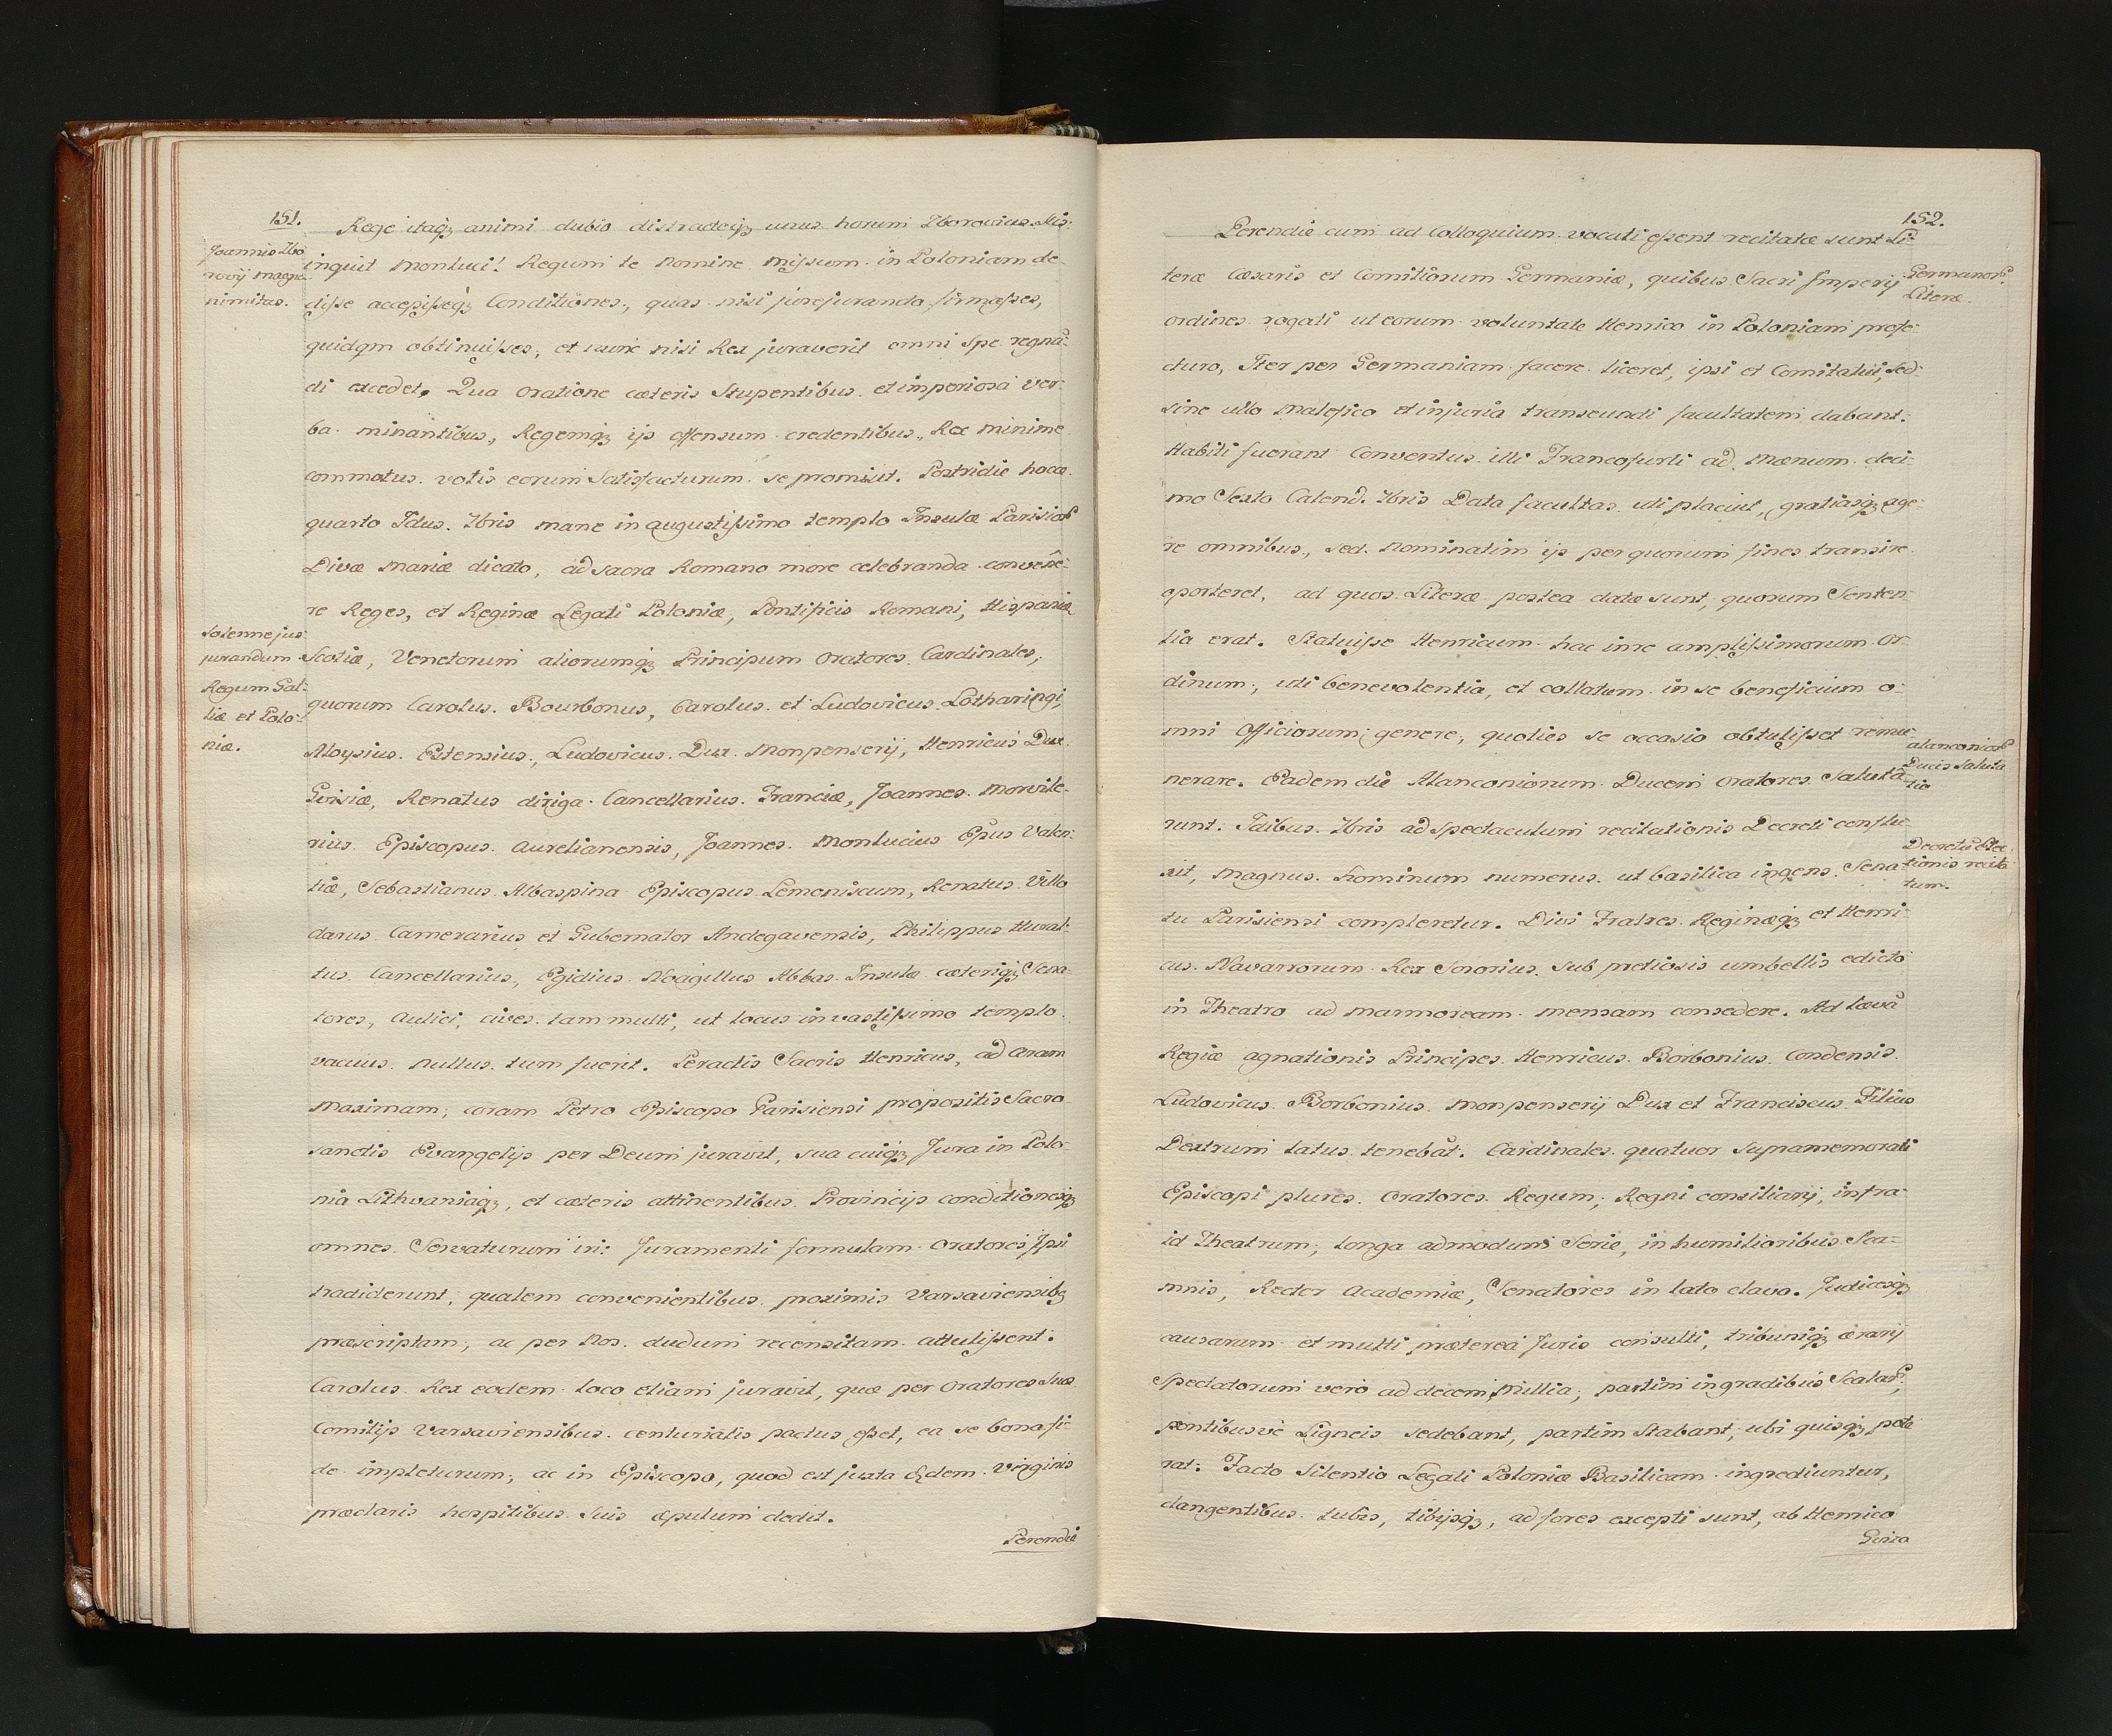 151.
Rege itaq́ animi dubio distracteq́ unus horum Zborovius. Mis:
Joannis Zbo
rovij magna
nimitas.
inquit Monluci! Regum te nomine missum in Poloniam de-
disse accepisseq́ Conditiones, quas nisi jurejurando firmasses,
quidqm obtinuisses, et nunc nisi Rex juraverit omni spe regnā-
di excedet. Qua oratione cæteris Stupentibus et imperiosa ver-
ba minantibus, Regemq́ ijs offensum credentibus, Rex minime
commotus votis eorum Satisfacturum se promisit. Postridie hoc e
quarto Idus. 7bris mane in augustissimo templo Insulæ Parisior
Divæ Mariæ dicato, ad sacra Romano more celebranda convenē-
re Reges, et Reginæ Legati Poloniæ, Pontificis Romani, Hispaniæ
Solenne jus-
jurandum
Regum Gal-
liæ et Polo-
niæ.
Scotiæ, Venetorum aliorumq́ Principum Oratores. Cardinales,
quorum Carolus. Bourbonus, Carolus. et Ludovicus. Lotharingi,
Aloysius. Estensius, Ludovicus. Dux. Monpenserij, Henricus Dux
Guisiæ, Renatus diriga. Cancellarius. Franciæ, Joannes. Morvile-
rius. Episcopus. Aurelianensis, Joannes. Monlucius Ep̄us Valen-
tiæ, Sebastianus. Albaspina Episcopus. Lemonicum, Renatus. Villo
darus Camerarius et Gubernator Andegavensis, Philippus Hural-
tus Cancellarius, Egidius. Noagillus Abbas. Insulæ cæteriq́ Sena-
tores, Aulici, cives. tam multi, ut locus in vastissimo templo
vacuus. nullus. tum fuerit. Peractis Sacris Henricus, ad Aram
Maximam, coram Petro Episcopo Parisiensi propositis Sacro
sanctis Evangelijs per Deum juravit, sua cuiq́ Jura in Polo-
nia Lithvaniaq́, et cæteris attinentibus Provincijs conditionesq́
omnes. Servaturum iri: Juramenti formulam Oratores Ipsi
tradiderunt, qualem convenientibus proximis Varsaviensibq́
præscriptam, ac per Nos. dudum recensitam attulissent:
Carolus. Rex eodem loco etiam juravit, quæ per Oratores Suos
Comitijs Varsaviensibus. centuriatis pactus esset, ea se bona fi-
de impleturum, ac in Episcopo, quod est juxta Ædem. Virginis
præclaris hospitibus Suis epulum dedit.
Perendie
152.
Perendie cum ad Colloquium vocati essent recitatæ sunt Li-
teræ Cæsaris et Comitiorum Germaniæ, quibus Sacri Imperij
Germanor
Literæ.
ordines rogati ut eorum voluntate Henrico in Poloniam profe-
cturo, Iter per Germaniam facere liceret, ipsi et Comitatui, sed
sine ullo malefico et injuria transeundi facultatem dabant.
Habiti fuerant Conventus. illi Francofurti ad Mænum deci-
mo Sexto Calend. 7bris Data facultas uti placuit, gratiasq́ age-
re omnibus, sed nominatim ijs per quorum fines transire
oporteret, ad quos Literæ postea datæ sunt, quorum Senten-
tia erat. Statuisse Henricum hac in re amplissimorum Or-
dinum, uti benevolentia, et collatum in se beneficium o-
mni Officiorum, genere, quoties se occasio obtulisset remu-
Alanconior
Ducis Saluta
tio
nerare. Eadem die Alanconiorum Ducem Oratores Saluta-
runt. Idibus. 7bris ad spectaculum recitationis Decreti conflu
Decretū Elec
tionis recita
tum.
xit, magnus. hominum numerus. ut basilica ingens. Sena-
tu Parisiensi compleretur. Divi Fratres. Reginæq́ et Henri-
cus. Navarrorum Rex Sororius. Sub pretiosis umbellis edicto
in Theatro ad marmoream mensam consedere. Ad lævā
Regiæ agnationis Principes. Henricus. Borbonius. Condensis.
Ludovicus. Borbonius. Monpenserij Dux et Franciscus Filius
Dextrum latus. tenebāt. Cardinales quatuor Supramemorati
Episcopi plures. Oratores. Regum, Regni consiliarij, infra
id Theatrum, longa admodum Serie, in humilioribus Sca-
mnis, Rector Academiæ, Senatores in lato clavo. Judicesq́
causarum et multi præterea Juris consulti, tribuniq́ ærarij
Spectatorum vero ad decem millia, partim in gradibus Scalar,
pontibusve Ligneis sedebant, partim Stabant, ubi quisq́ pote
rat. Facto Silentio Legati Poloniæ Basilicam ingrediuntur,
clangentibus. tubis, tibijsq́, ad fores excepti sunt, ab Henrico
Guisio